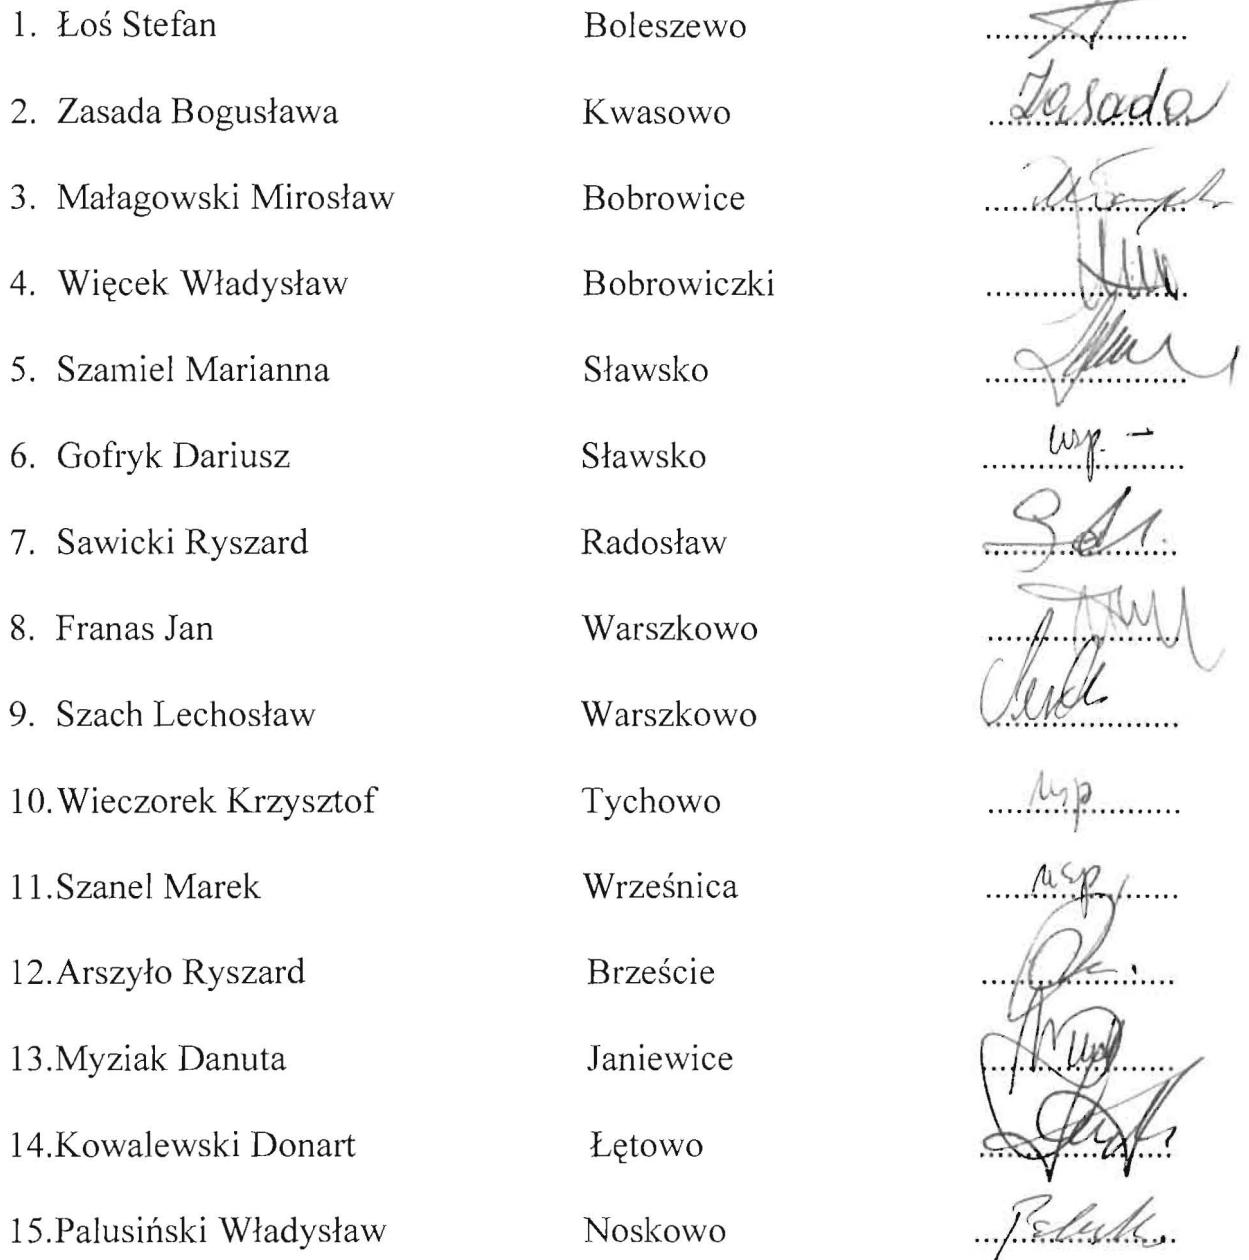 1. Łoś Stefan Boleszewo
2. Zasada Bogusława Kwasowo Zasada
3. Małagowski Mirosław Bobrowice
4. Więcek Władysław Bobrowiczki
5. Szamiel Marianna Sławsko
6. Gofryk Dariusz Sławsko usp. –
7. Sawicki Ryszard Radosław
8. Franas Jan Warszkowo
9. Szach Lechosław Warszkowo
10. Wieczorek Krzysztof Tychowo usp
11. Szanel Marek Wrześnica usp
12. Arszyło Ryszard Brzeście
13. Myziak Danuta Janiewice
14. Kowalewski Donart Łętowo
15. Palusiński Władysław Noskowo